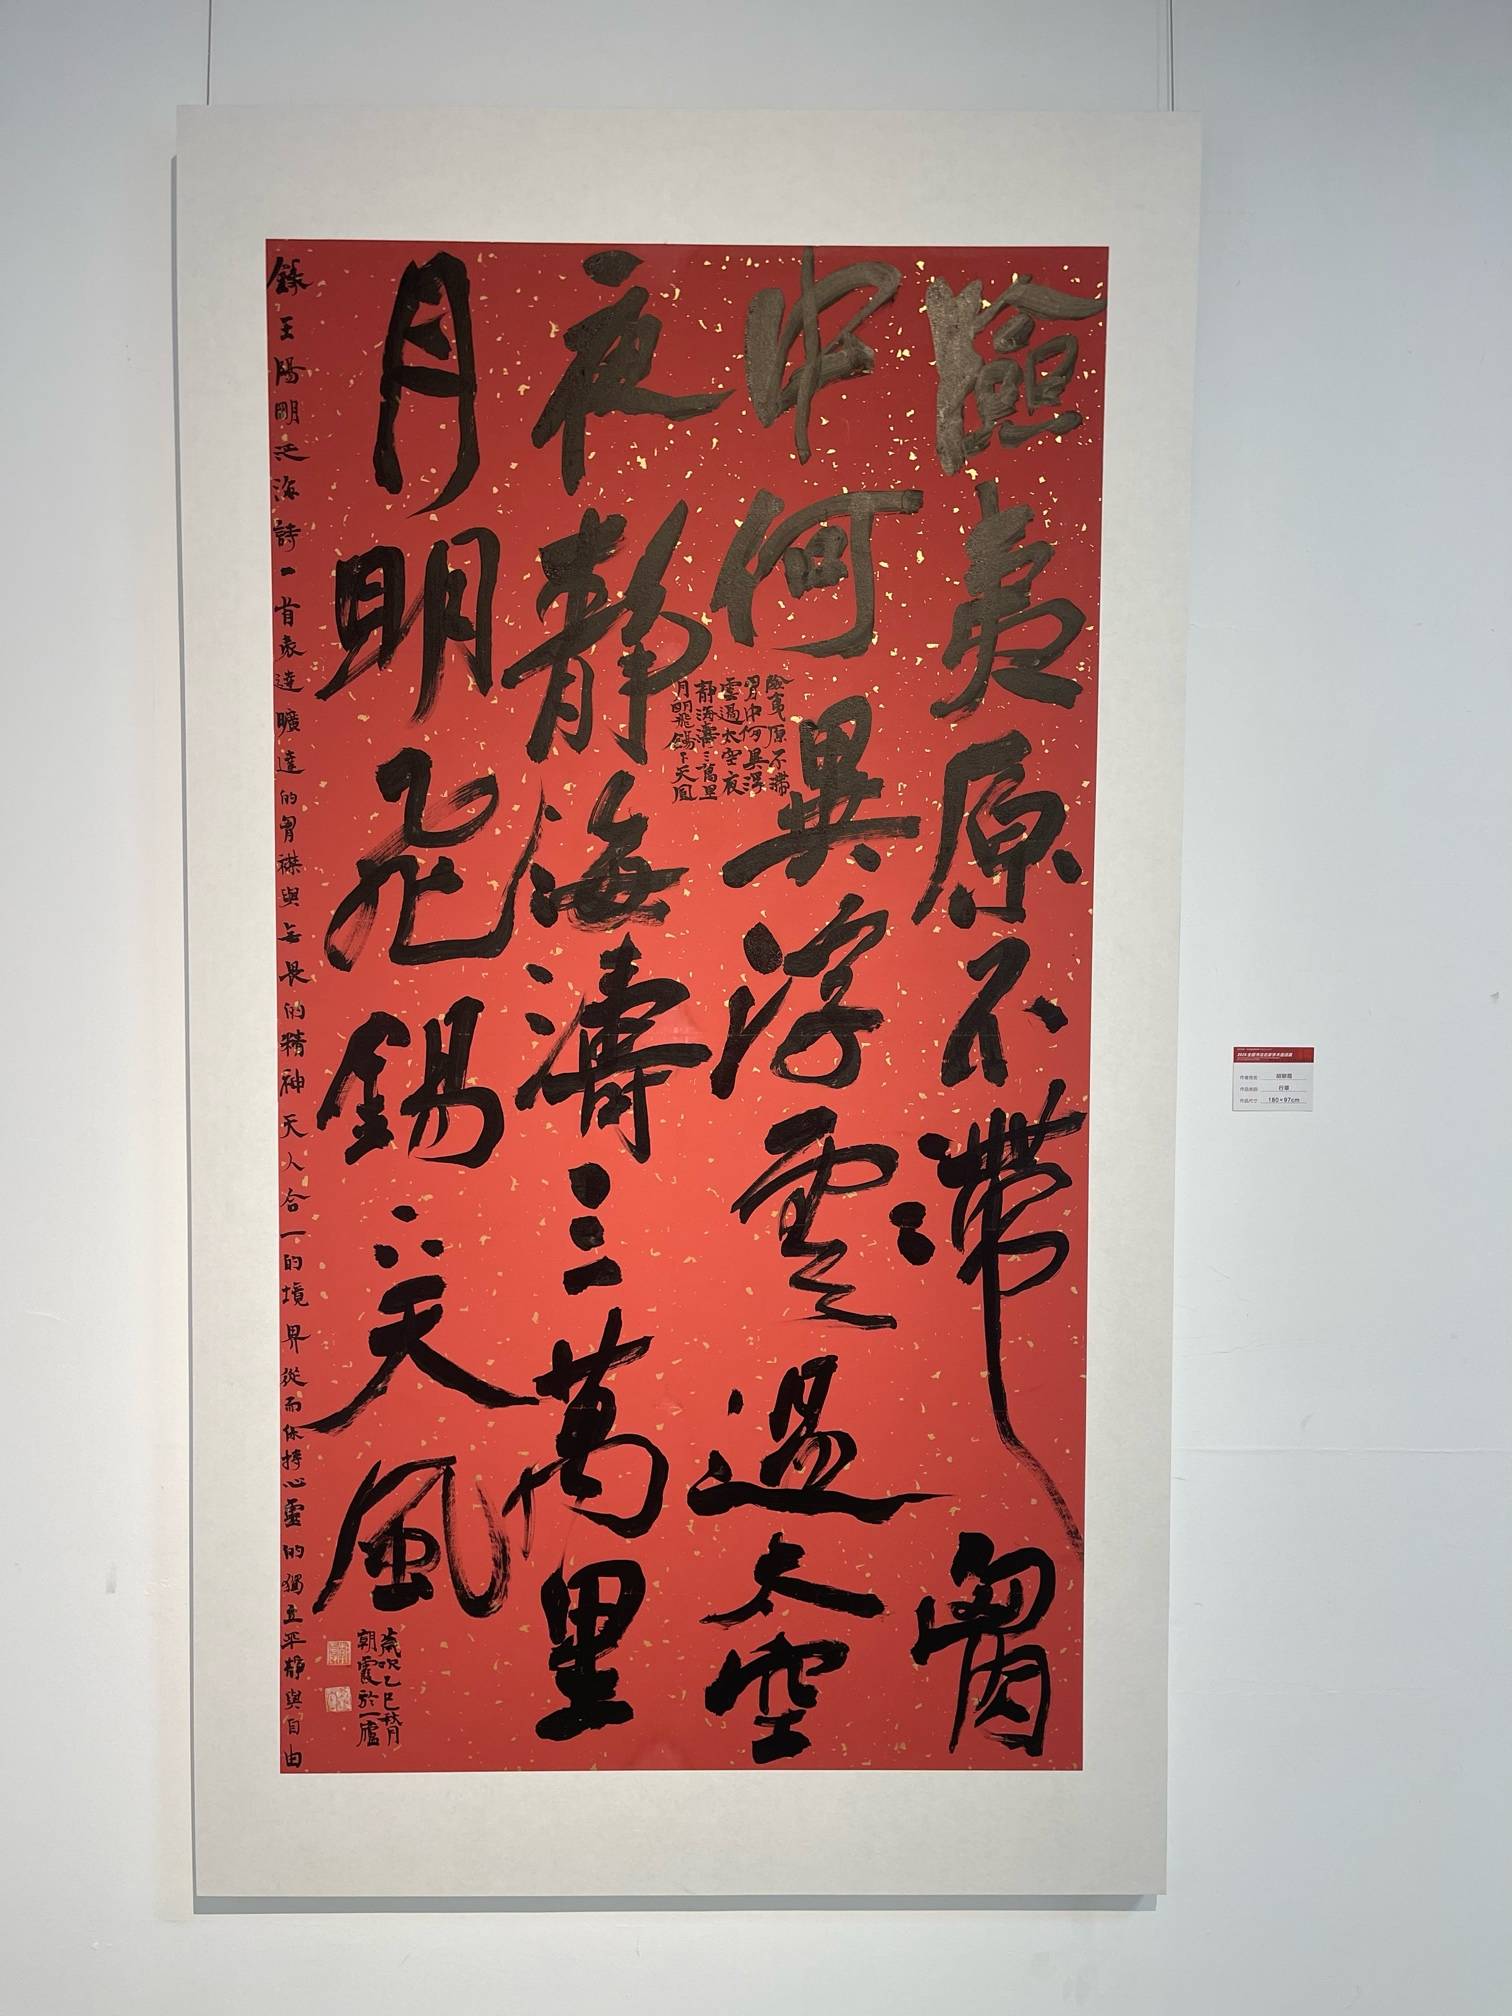 險夷原不滯胷
中何異浮雲過太空
夜靜海濤三萬里
月明飛錫下天風
險夷原不滯
胷中何異浮
雲過太空夜
靜海濤三萬里
月明飛錫下天風
歲次乙巳秋月
朝霞於一廬
錄王陽明泛海詩一首表達曠達的胷襟與无畏的精神天人合一的境界從而保持心靈的獨立平靜與自由
作者姓名 胡朝霞
作品名称 行草
作品尺寸 180×97cm